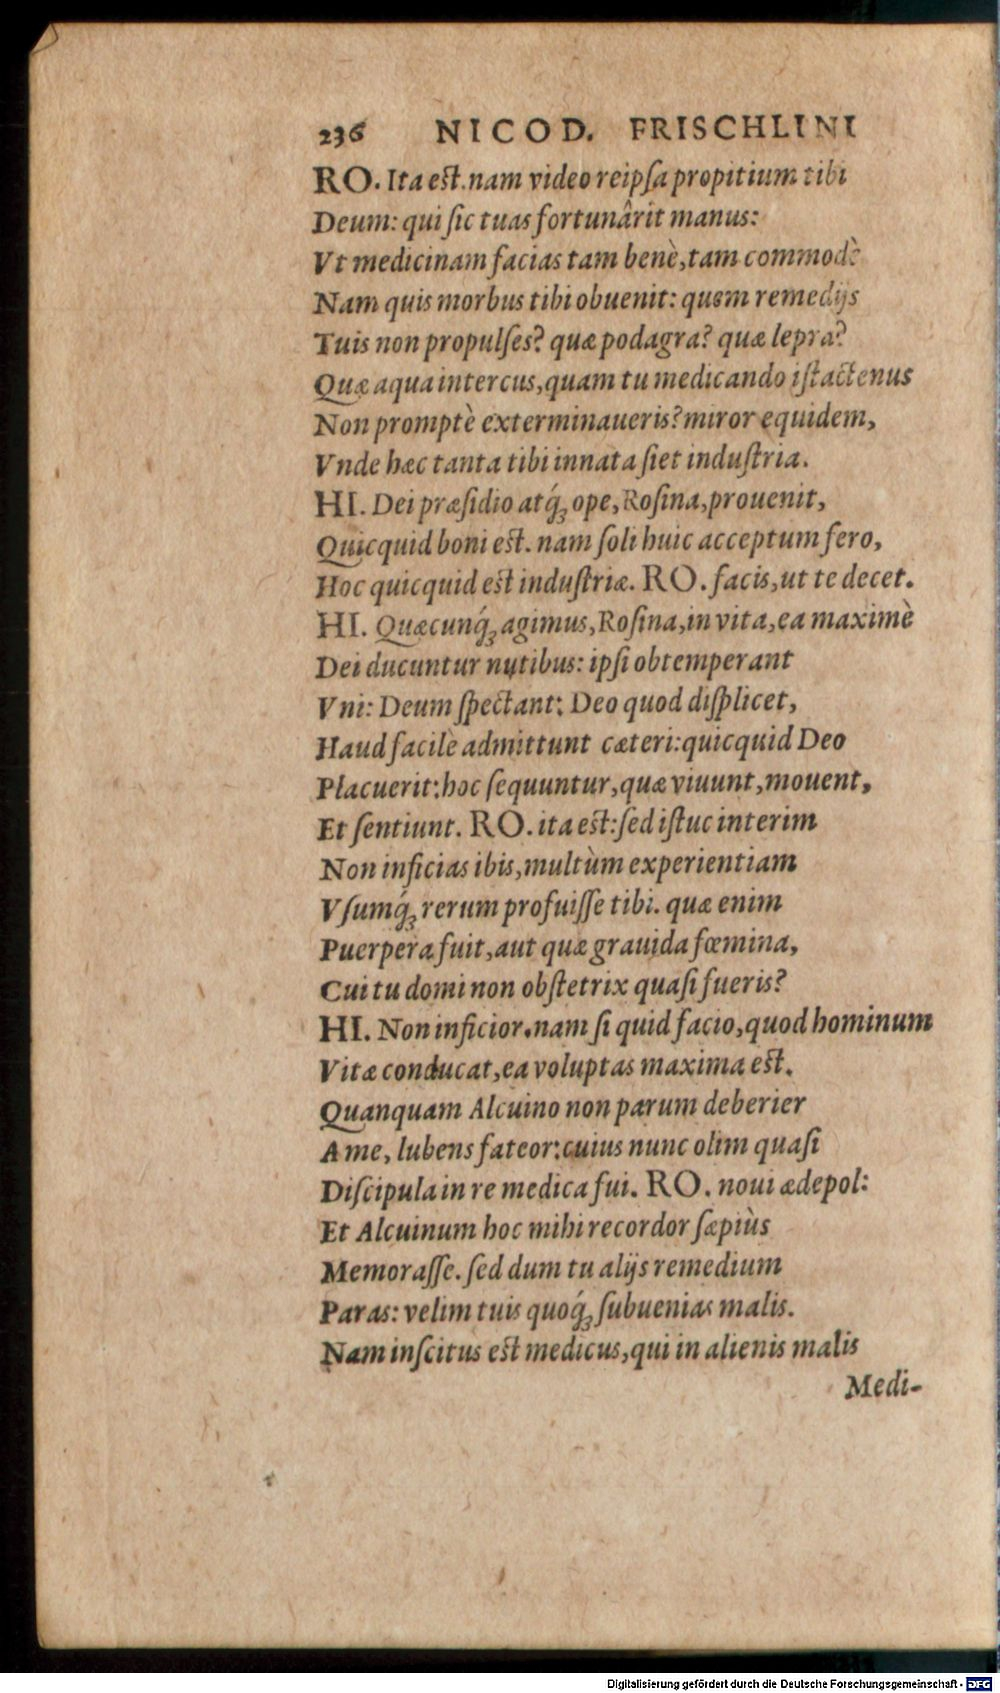 236 NICOD. FRISCHLINI
RO. Ita est. nam video reipſa propitium tibi
Deum: qui ſic tuas fortunârit manus:
Vt medicinam facias tam benè, tam commodè
Nam quis morbus tibi obuenit: quem remedijs
Tuis non propulſes? quæ podagra? quæ lepra?
Quæ aqua intercus, quam tu medicando iſtactenus
Non promptè exterminaueris? miror equidem,
Vnde hæc tanta tibi innata ſiet induſtria.
HI. Dei præſidio atq́ꝫ ope, Roſina, prouenit,
Quicquid boni est. nam ſoli huic acceptum fero,
Hoc quicquid est induſtriæ. RO. facis, ut te decet.
HI. Quæcunq́ꝫ agimus, Roſina, in vita, ea maximè
Dei ducuntur nutibus: ipſi obtemperant
Vni: Deum ſpectant: Deo quod diſplicet,
Haud facilè admittunt cæteri: quicquid Deo
Placuerit: hoc ſequuntur, quæ viuunt, mouent,
Et ſentiunt. RO. ita est: ſed iſtuc interim
Non inficias ibis, multùm experientiam
Vſumq́ꝫ rerum profuiſſe tibi. quæ enim
Puerpera fuit, aut quæ grauida fœmina,
Cui tu domi non obſtetrix quaſi fueris?
HI. Non inficior. nam ſi quid facio, quod hominum
Vitæ conducat, ea voluptas maxima est.
Quanquam Alcuino non parum deberier
A me, lubens fateor: cuius nunc olim quaſi
Diſcipula in re medica fui. RO. noui ædepol:
Et Alcuinum hoc mihi recordor ſæpiùs
Memoraſſe. ſed dum tu alijs remedium
Paras: velim tuis quoq́ꝫ ſubuenias malis.
Nam inſcitus est medicus, qui in alienis malis
Medi-
Digitalisierung gefördert durch die Deutsche Forschungsgemeinschaft - DFG